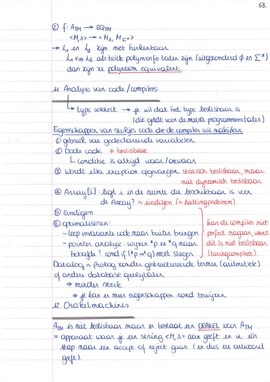 63.
② f: A_TM → EQ_TM
<M,s> → <M_1, M_2>
→ L_1 en L_2 zijn niet herkenbaar
L_1 ≤m L_2 als beide polynomiale talen zijn (uitgezonderd ∅ en Σ*)
dan zijn ze polynoom equivalent.
Analyse van code/compilers
→ type correct → je wil dat het type beslisbaar is
(dit geldt van de meeste programmeertalen)
Eigenschappen van stukjes code die de compiler wil
① gebruik van gedeclareerde variabelen
② Dode code → beslisbaar
↳ conditie is altijd waar/onwaar
③ Wordt elke exception opgevangen → statisch beslisbaar, maar
niet dynamisch beslisbaar
④ Array[i] : ligt i in de ruimte die beschikbaar is voor
de Array? ≈ eindigen (= haltingprobleem)
⑤ Eindigen
⑥ optimaliseren:
- loop invariante code naar buiten brengen
- pointer analyse: wijzen *p en *q naar
hetzelfde? want if (*p = *q) moet slagen
kan de compiler niet
perfect nagaan, want
dit is niet beslisbaar
(turingcompleet)
Datalog ≈ prolog zonder gestructureerde termen
of andere database querytalen
→ minder sterk
→ je kan er meer eigenschappen rond bewijzen
Orakelmachines
A_TM is niet beslisbaar maar er bestaat een orakel voor A_TM
= apparaat waar je een string <M,s> aan geeft en in één
stap naar een accept of reject gaat (en dus het antwoord
geeft).